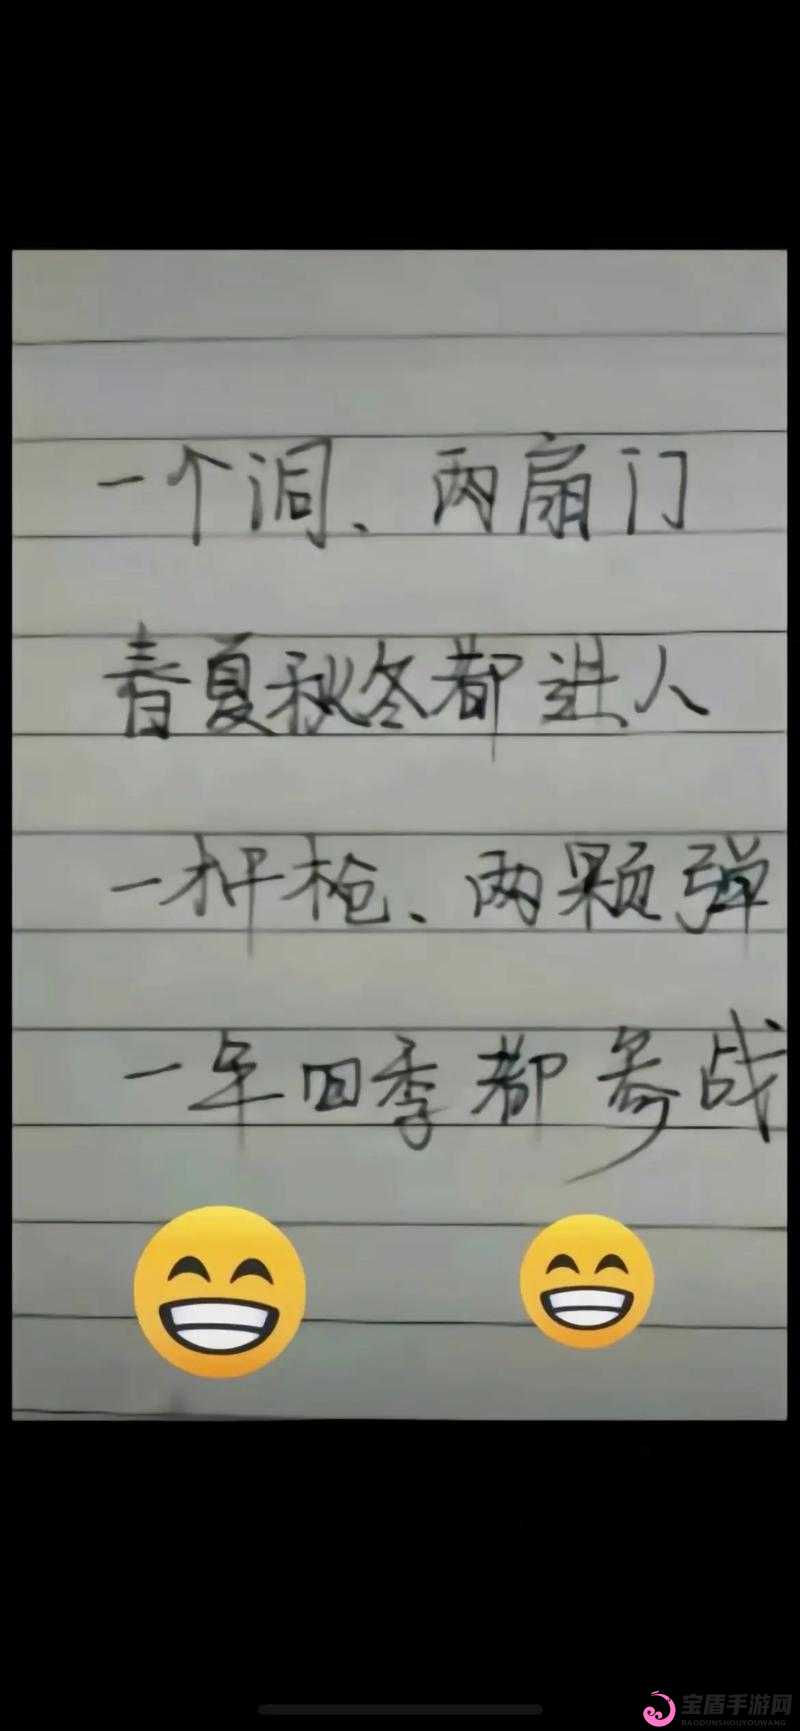 一个洞、两扇门
春夏秋冬都进人
一杆枪、两颗弹
一年四季都参战
宝盾手游网
BAODUNSHOUYOUWANG